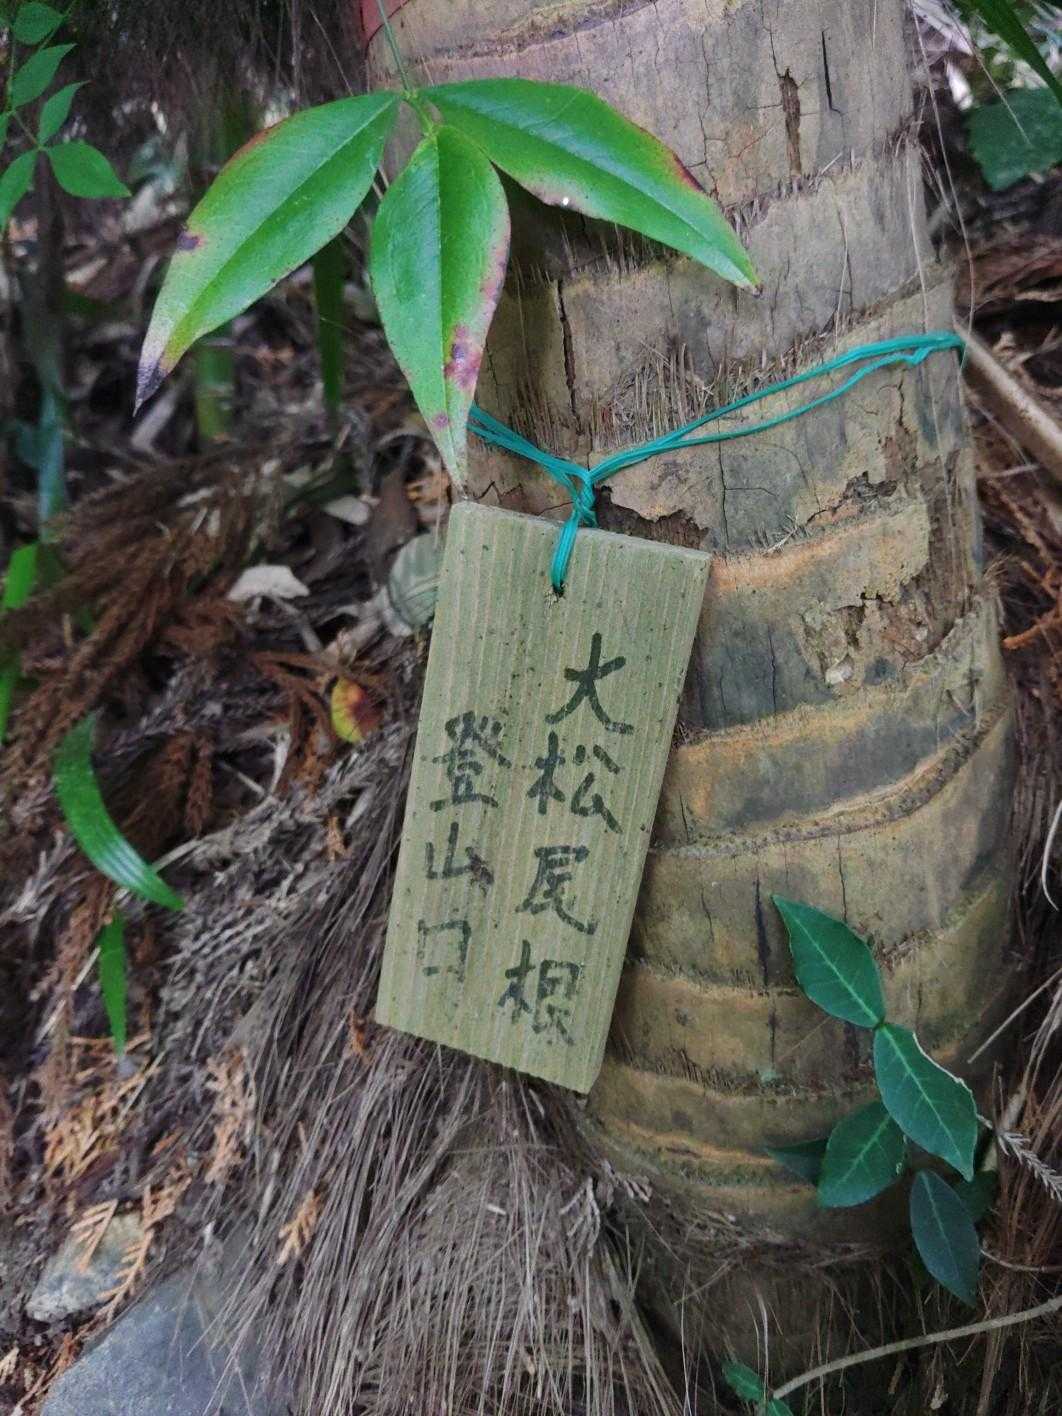 大松尾根
登山口